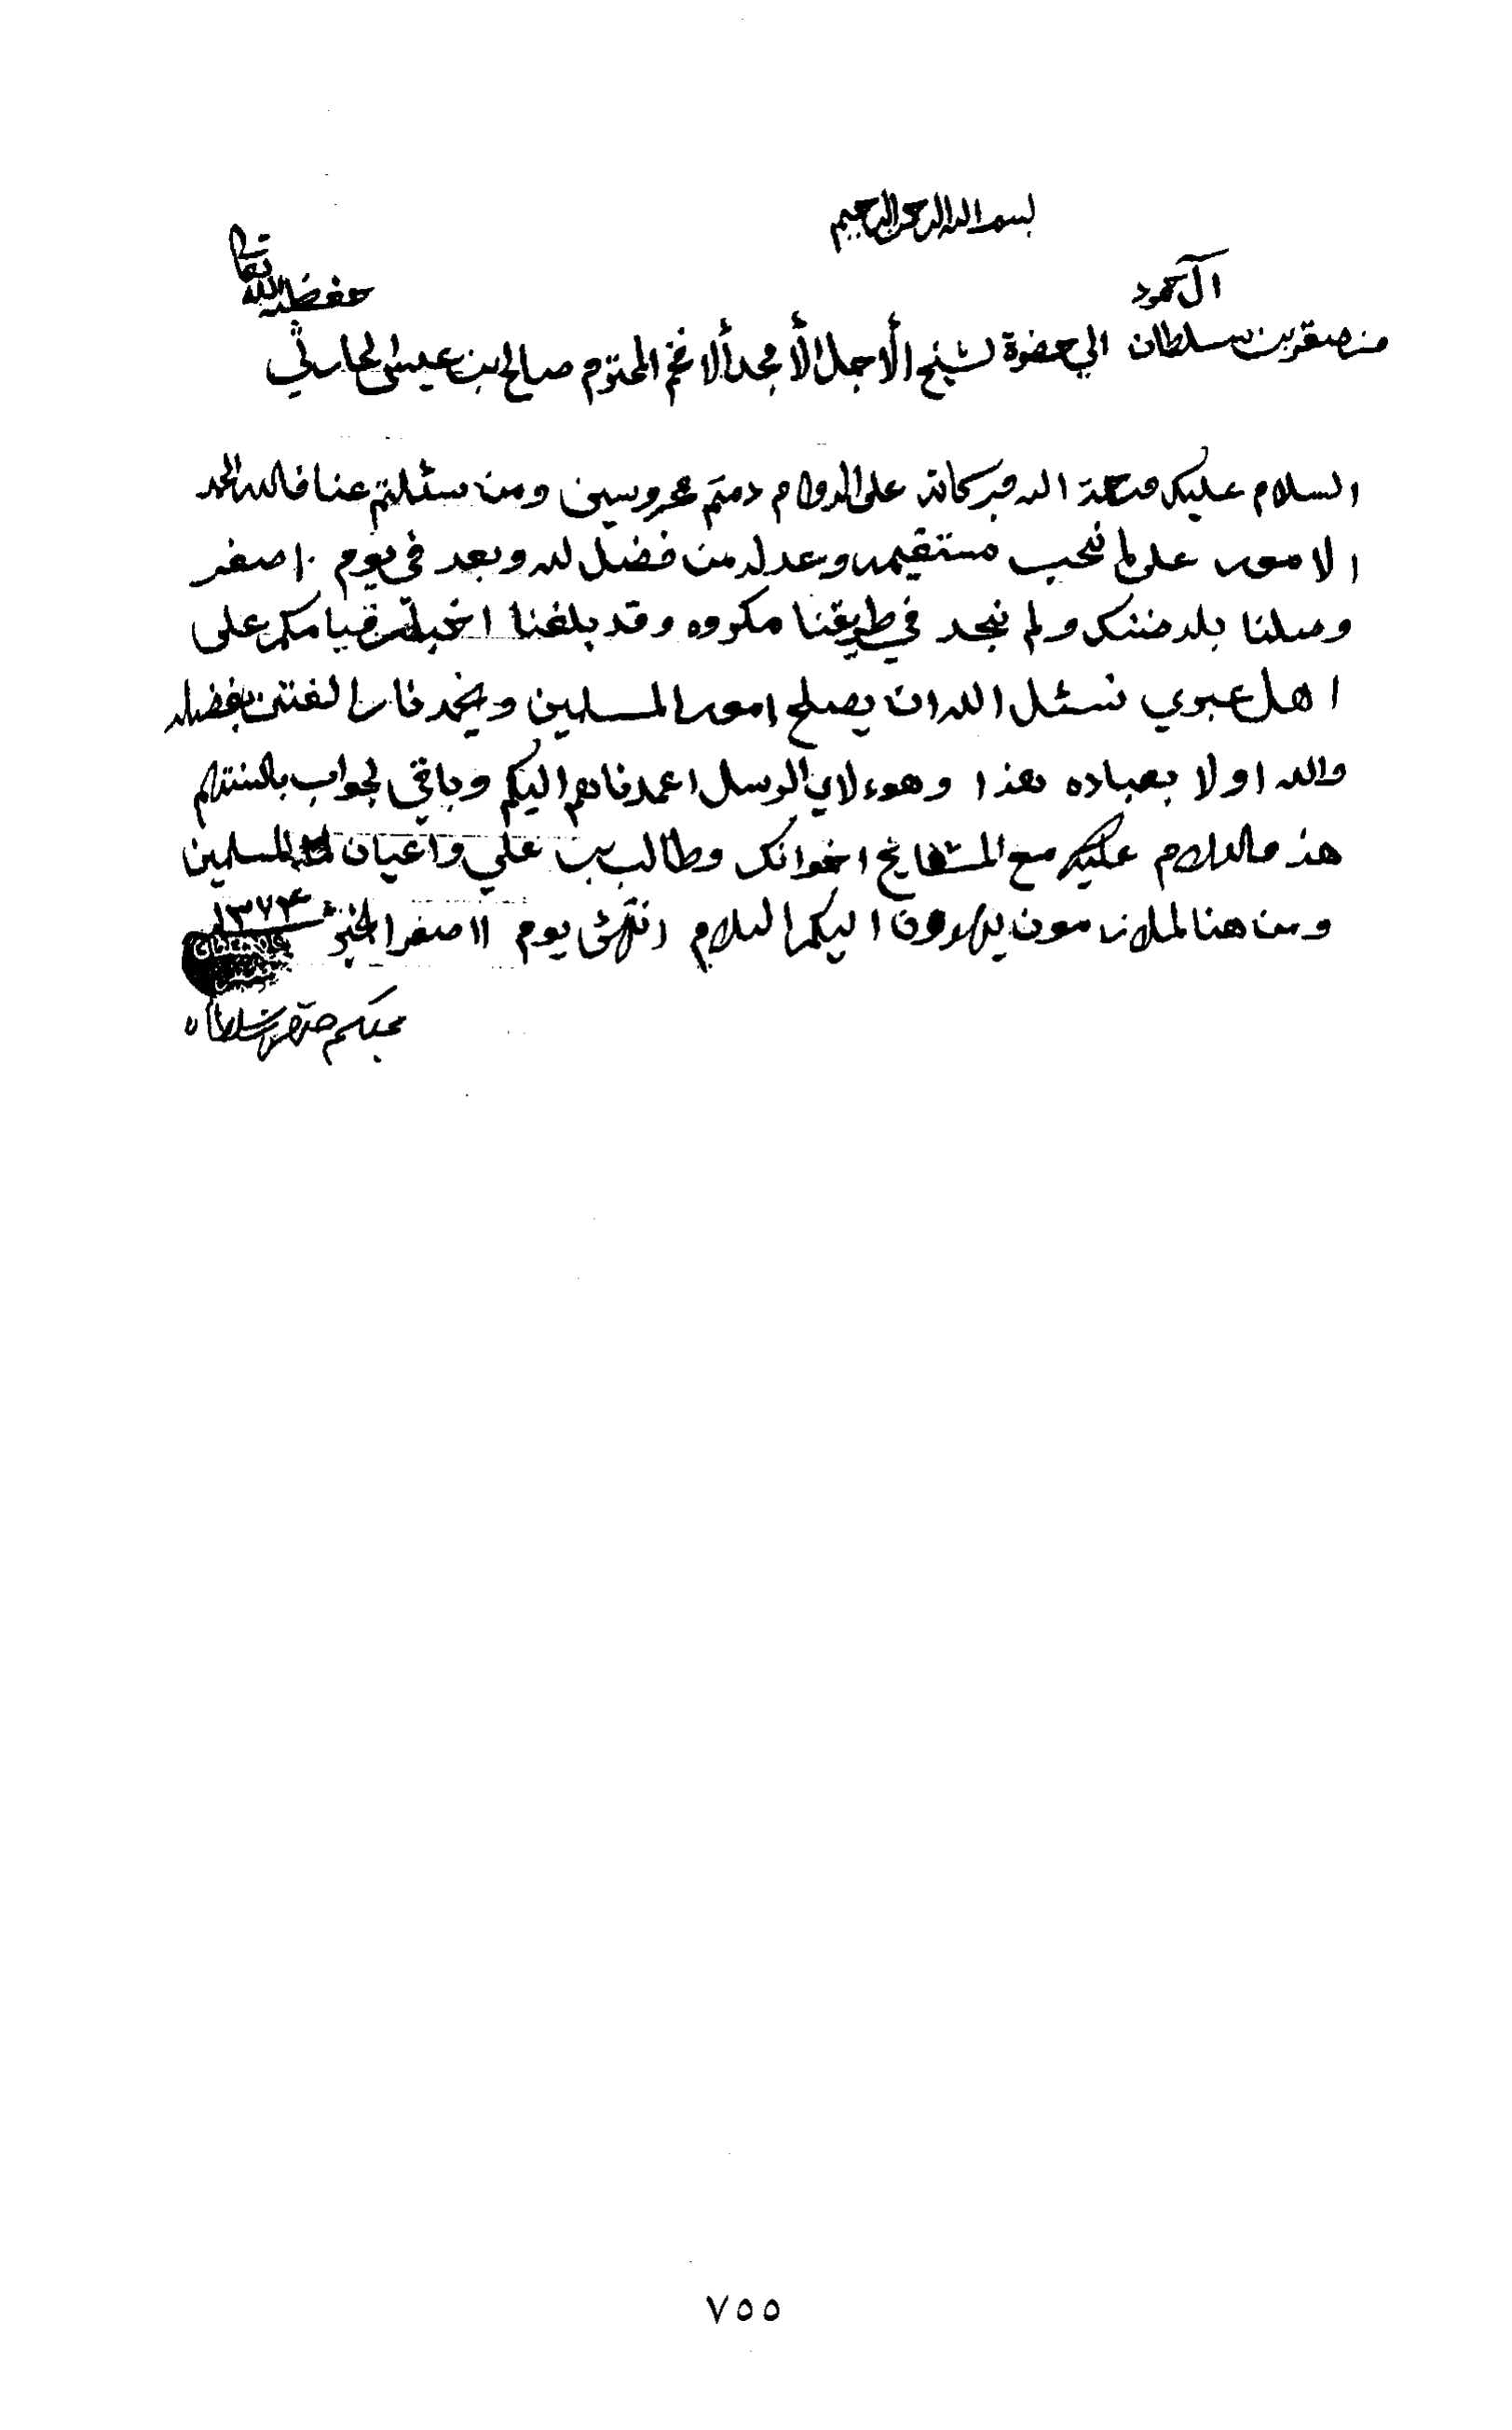 بسم الله الرحمن الرحيم
آل حمود
حفظه الله تعالى
من صقر بن سلطان الي حضرة لشيخ الأجمل الأمجد ألافخم المحترم صالح بن عيسى الحارثي
السلام عليكم ورحمة الله وبركاته على الدوام دمتم محروسين ومن سئلتم عنا فالله الحمد
الامور على ما نحب مستقيمه وعدله من فضل لله وبعد في يوم ١٠ صفر
وصلنا بلد ضنك ولم نجد في طريقنا مكروه وقد بلغنا اخبار قيامكم على
اهل عبري نسئل الله ان يصلح امور المسلمين ويخمد نار الفتن بفضله
والله اولا بعباده هذا وهوءلاي الرسل اعمدناهم اليكم وباقي لجواب بالسنتهم
هذ والسلام عليكم مع المشايخ اخوانك وطالب بن علي واعيان المسلمين
ومن هنا لملازمون يهدون اليكم السلام انتهى يوم ١١ صفر الخير ١٣٧٤
محبكم صقر بن سلطان
٧٥٥